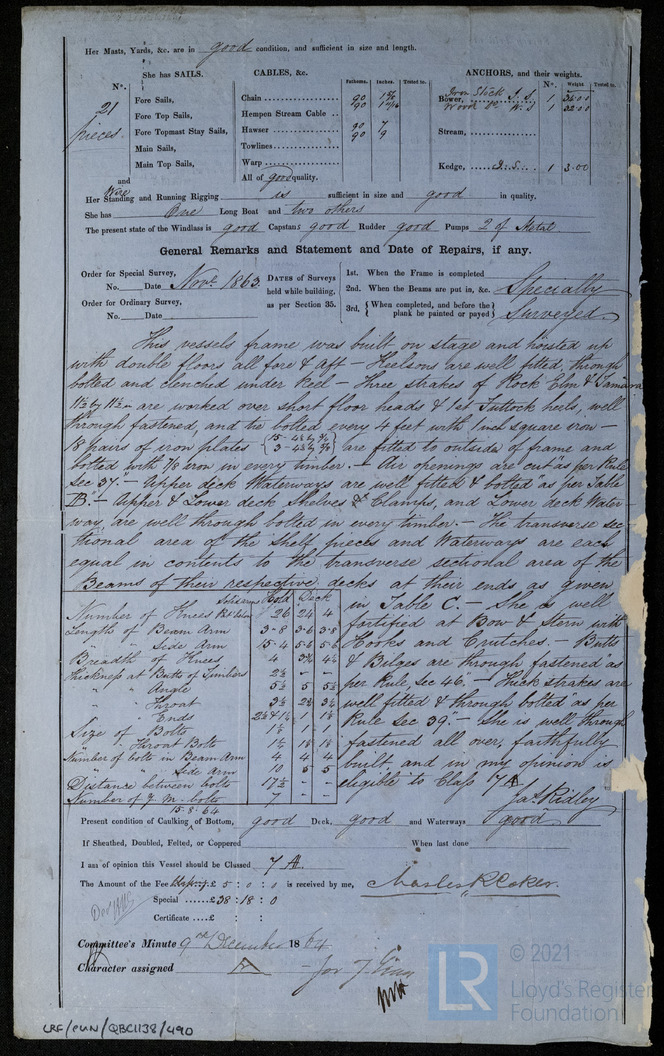 Her Masts, Yards, &c. are in good condition, and sufficient in size and length.
She has SAILS.
CABLES, &c.
Fathoms. Inches. Tested to.
ANCHORS, and their weights.
No. Weight Tested to.
No.
21
pieces.
Fore Sails,
Fore Top Sails,
Fore Topmast Stay Sails,
Main Sails,
Main Top Sails,
and
Chain 90
90
Hempen Stream Cable
Hawser 90 7
90 9
Towlines
Warp
All of good quality.
Iron Stock I.S.
Bower, 1 34.0.0
Wood Do W.S 1 32.0.0
Stream,
Kedge, I.S. 1 3.0.0
Her Standing and Wire Running Rigging is sufficient in size and good in quality.
She has One Long Boat and two others
The present state of the Windlass is good Capstans good Rudder good Pumps 2 of Metal
General Remarks and Statement and Date of Repairs, if any.
Order for Special Survey,
No. Date Novr. 1863.
Order for Ordinary Survey,
No. Date
DATES of Surveys
held while building,
as per Section 35.
1st. When the Frame is completed
2nd. When the Beams are put in, &c. Specially
3rd. { When completed, and before the plank be painted or payed } Surveyed.
This vessels frame was built on stage and hoisted up
with double floors all fore & aft – Keelsons are well fitted, through
bolted and clenched under Keel – Three strakes of Rock Elm & Tamarac
11½ by 11½ are worked over short floor heads & 1st Futtock heels, well
through fastened, and bolted every 4 feet with 1 inch square iron –
18 pairs of iron plates are fitted to outside of frame and
bolted with 7/8 iron in every timber. – Air openings are cut "as per Rule
Sec 37." – Upper deck Waterways are well fitted & bolted "as per Table
B." – Upper & Lower deck Shelves & Clamps, and Lower deck Water-
way are well through bolted in every timber. – The transverse sec-
tional area of the Shelf pieces and Waterways are each
equal in contents to the transverse sectional area of the
Beams of their respective decks at their ends as given
in Table C. – She is well
fortified at Bow & Stern with
Hooks and Crutches. – Butts
& Bilges are through fastened as
per Rule Sec 46. – Thick strakes are
well fitted & through bolted as per
Rule Sec 39. – She is well through
fastened all over, faithfully
built, and in my opinion is
eligible to Class 7 A
Jas Ridley
Hold Deck
Number of Knees 26 24 4
Length of Beam Arm 3-8 3-6 3-8
" " Side Arm 15-4 5-6 5-6
Breadth of Knees 4 3¾ 4½
Thickness at Butts of Timbers 2½ - -
" " Angle 5½ 5 5½
" " Throat 3½ 2¾ 3½
" " Ends
Size of Bolts 1⅛ 1 1
" " Throat Bolts
Number of bolts in Beam Arm 4 4 4
" " Side Arm 10 5 5
Distance between bolts 17½ - -
Number of Y.M. bolts 7 - -
15.8.64
Present condition of Caulking of Bottom, good Deck, good and Waterways good
If Sheathed, Doubled, Felted, or Coppered When last done
I am of opinion this Vessel should be Classed 7 A.
The Amount of the Fee £ 5 : 0 : 0 is received by me, Charles R Coker.
Special £ 38 : 18 : 0
Certificate £ : :
Committee's Minute 9th December 1864
Character assigned A
© 2021
LR
Lloyd's Register
Foundation
LRF/PUN/QBC1138/490